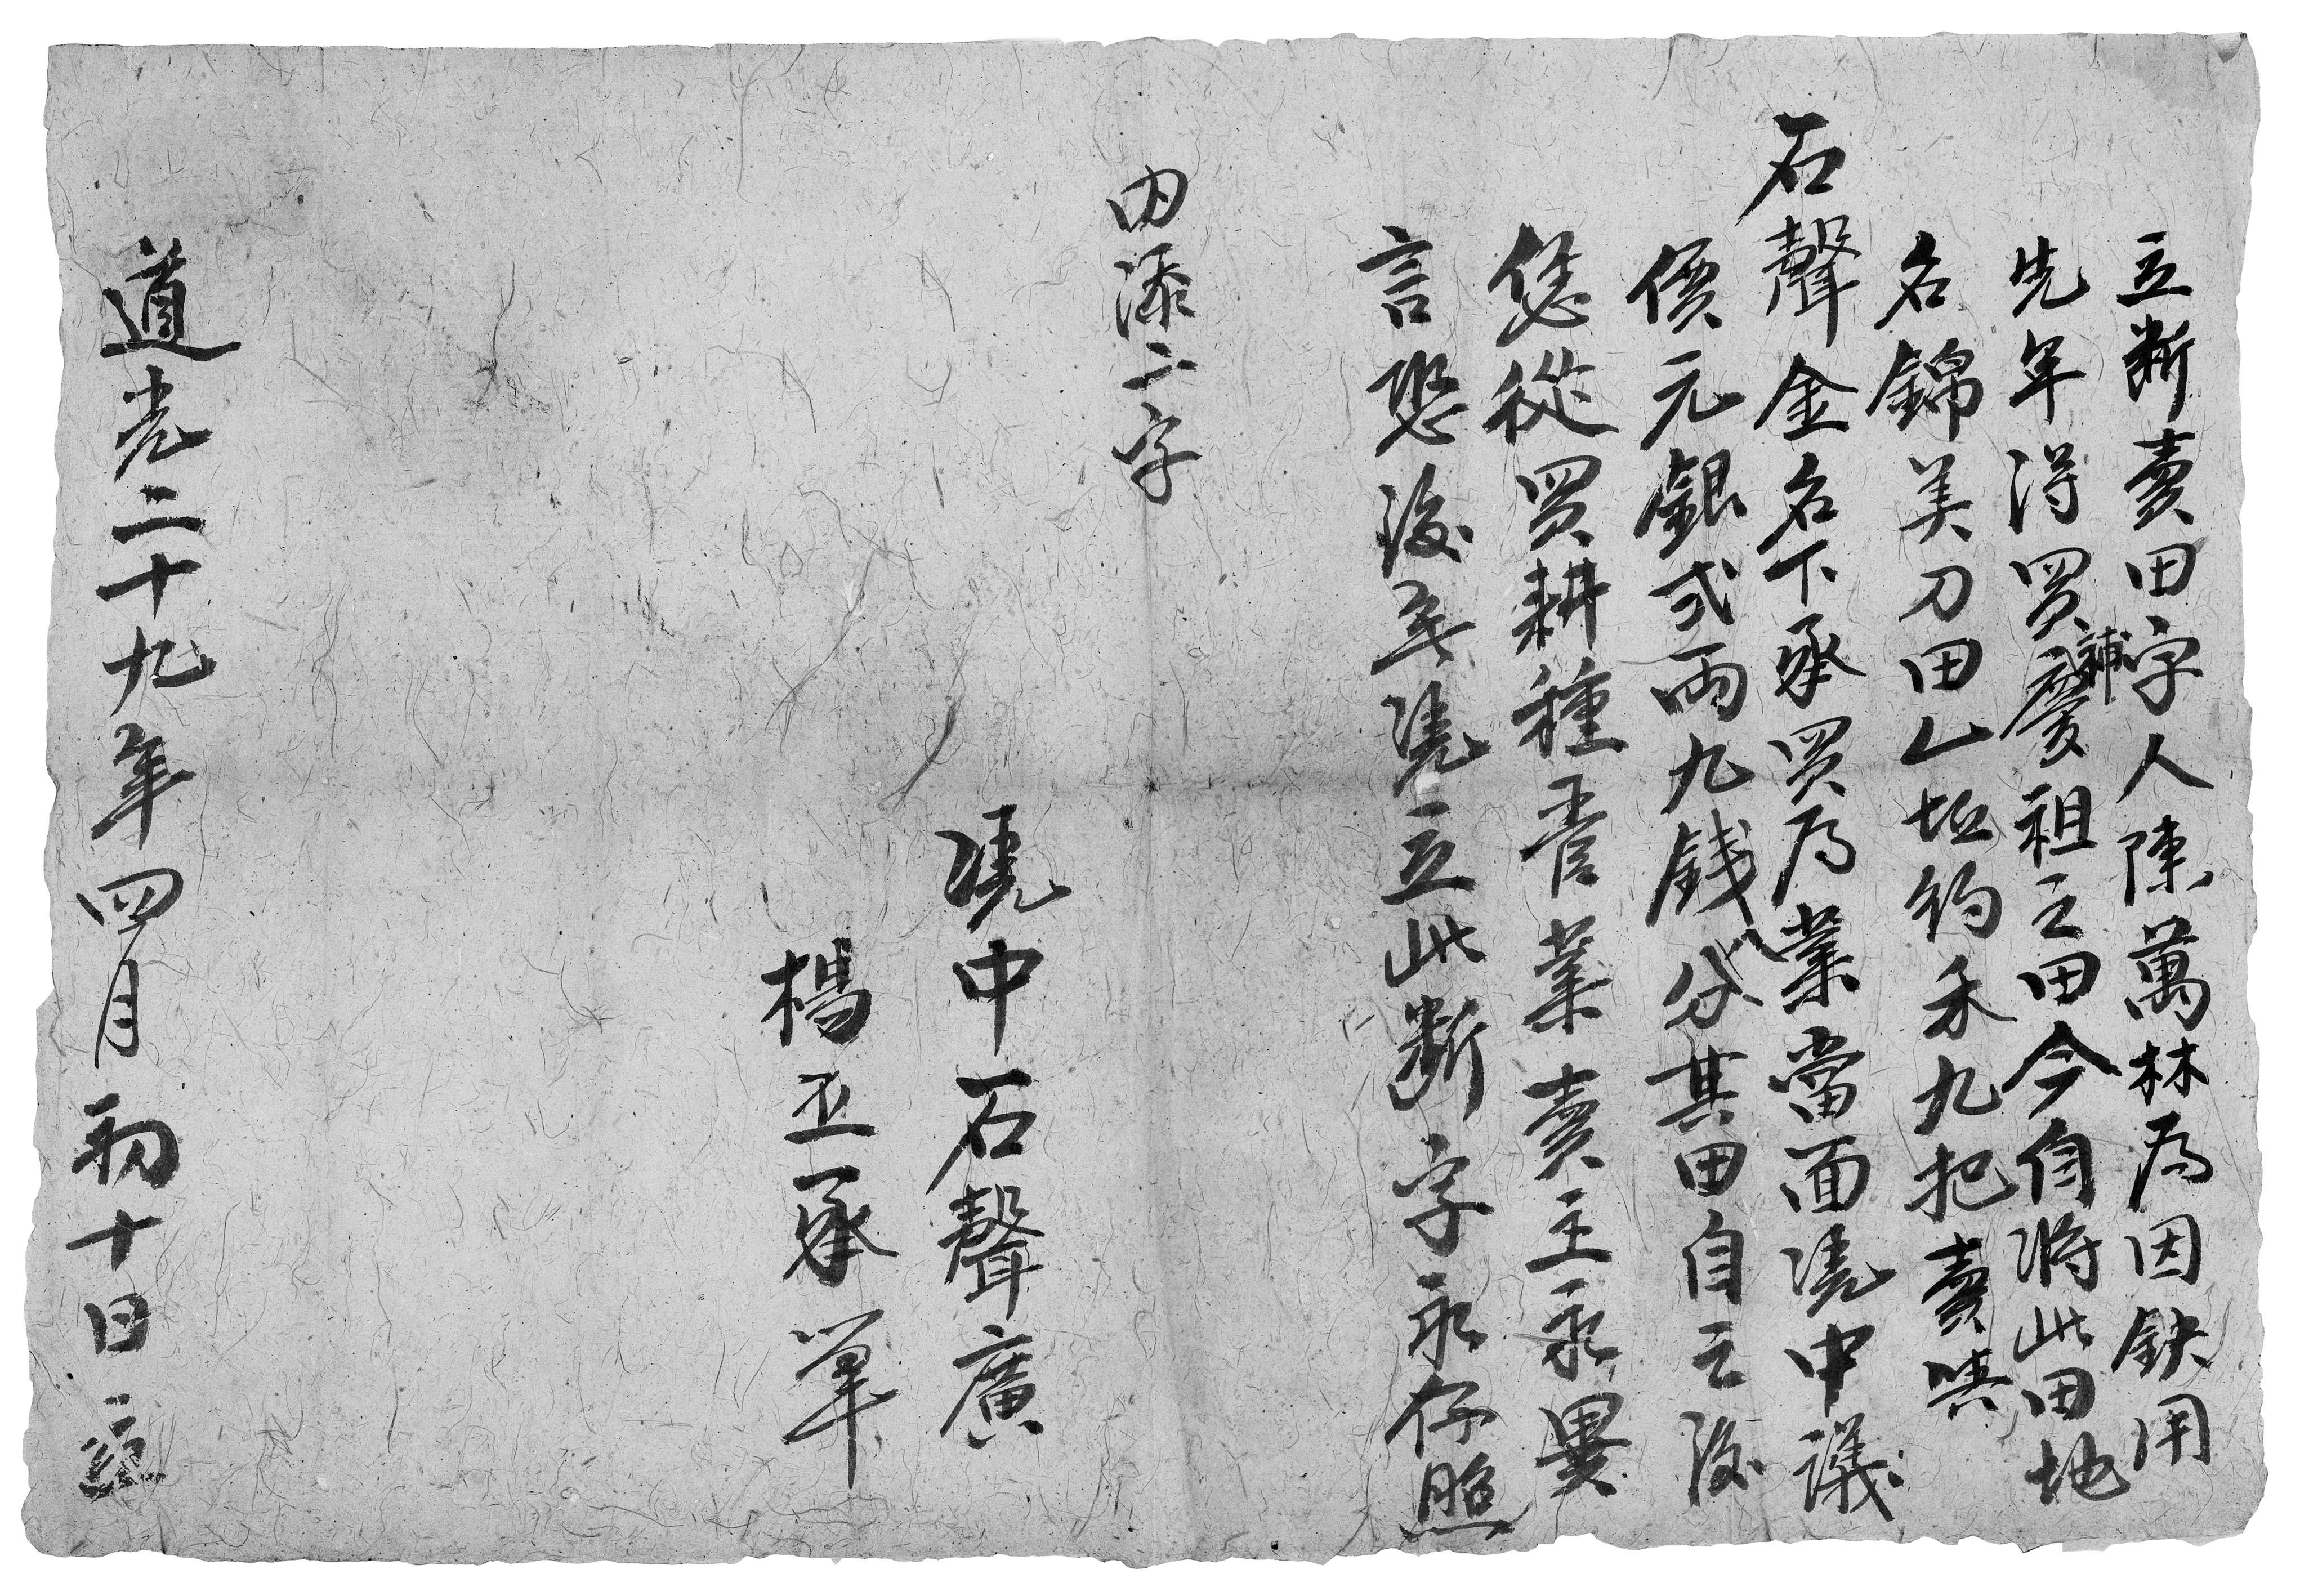 立斷賣田字人陳萬林為因缺用
先年得買補慶祖之田今自將此田地
名錦美刀田乙坵約禾九把賣與
石聲金名下承買為業當面凴中議
價元銀弍両九錢八分其田自之後
恁從買耕種管業賣主永異
言恐後無凴立此斷字永存照
内添二字
凴中石聲廣
楊正承筆
道光二十九年四月初十日立